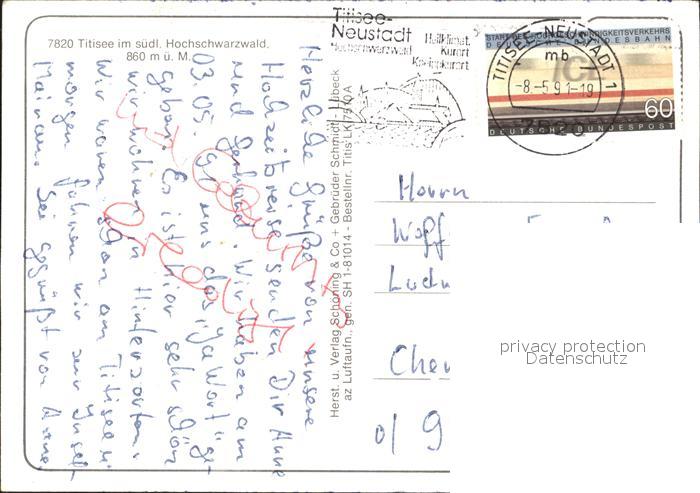 7820 Titisee im südl. Hochschwarzwald,
860 m ü. M.
Titisee-
Neustadt
Hochschwarzwald
Heilklimat.
Kurort
Kneippkurort
TITISEE-NEUSTADT 1
mb
-8.-5.91-19
START DES HOCHGESCHWINDIGKEITSVERKEHRS
DEUTSCHE BUNDESBAHN
ICE
60
DEUTSCHE BUNDESPOST
Herzliche Grüße von unsere
Hochzeitsreise senden Dir Anne
und Gerhard. Wir haben am
03.05. 91 uns das "Ja Wort" ge-
geben. Es ist hier sehr schön
wir wohnen in Hinterzarten.
Wir waren am Titisee u.
morgen fahren wir zur Insel
Mainau. Sei gegrüßt von Anne
Herst. u. Verlag Schöning & Co + Gebrüder Schmidt, Lübeck
az Luftaufn., gen. SH 1-81014 - Bestellnr. Titis LK 7510A
Herrn
Wolf
Ludw
Che
o/ 9
privacy protection
Datenschutz